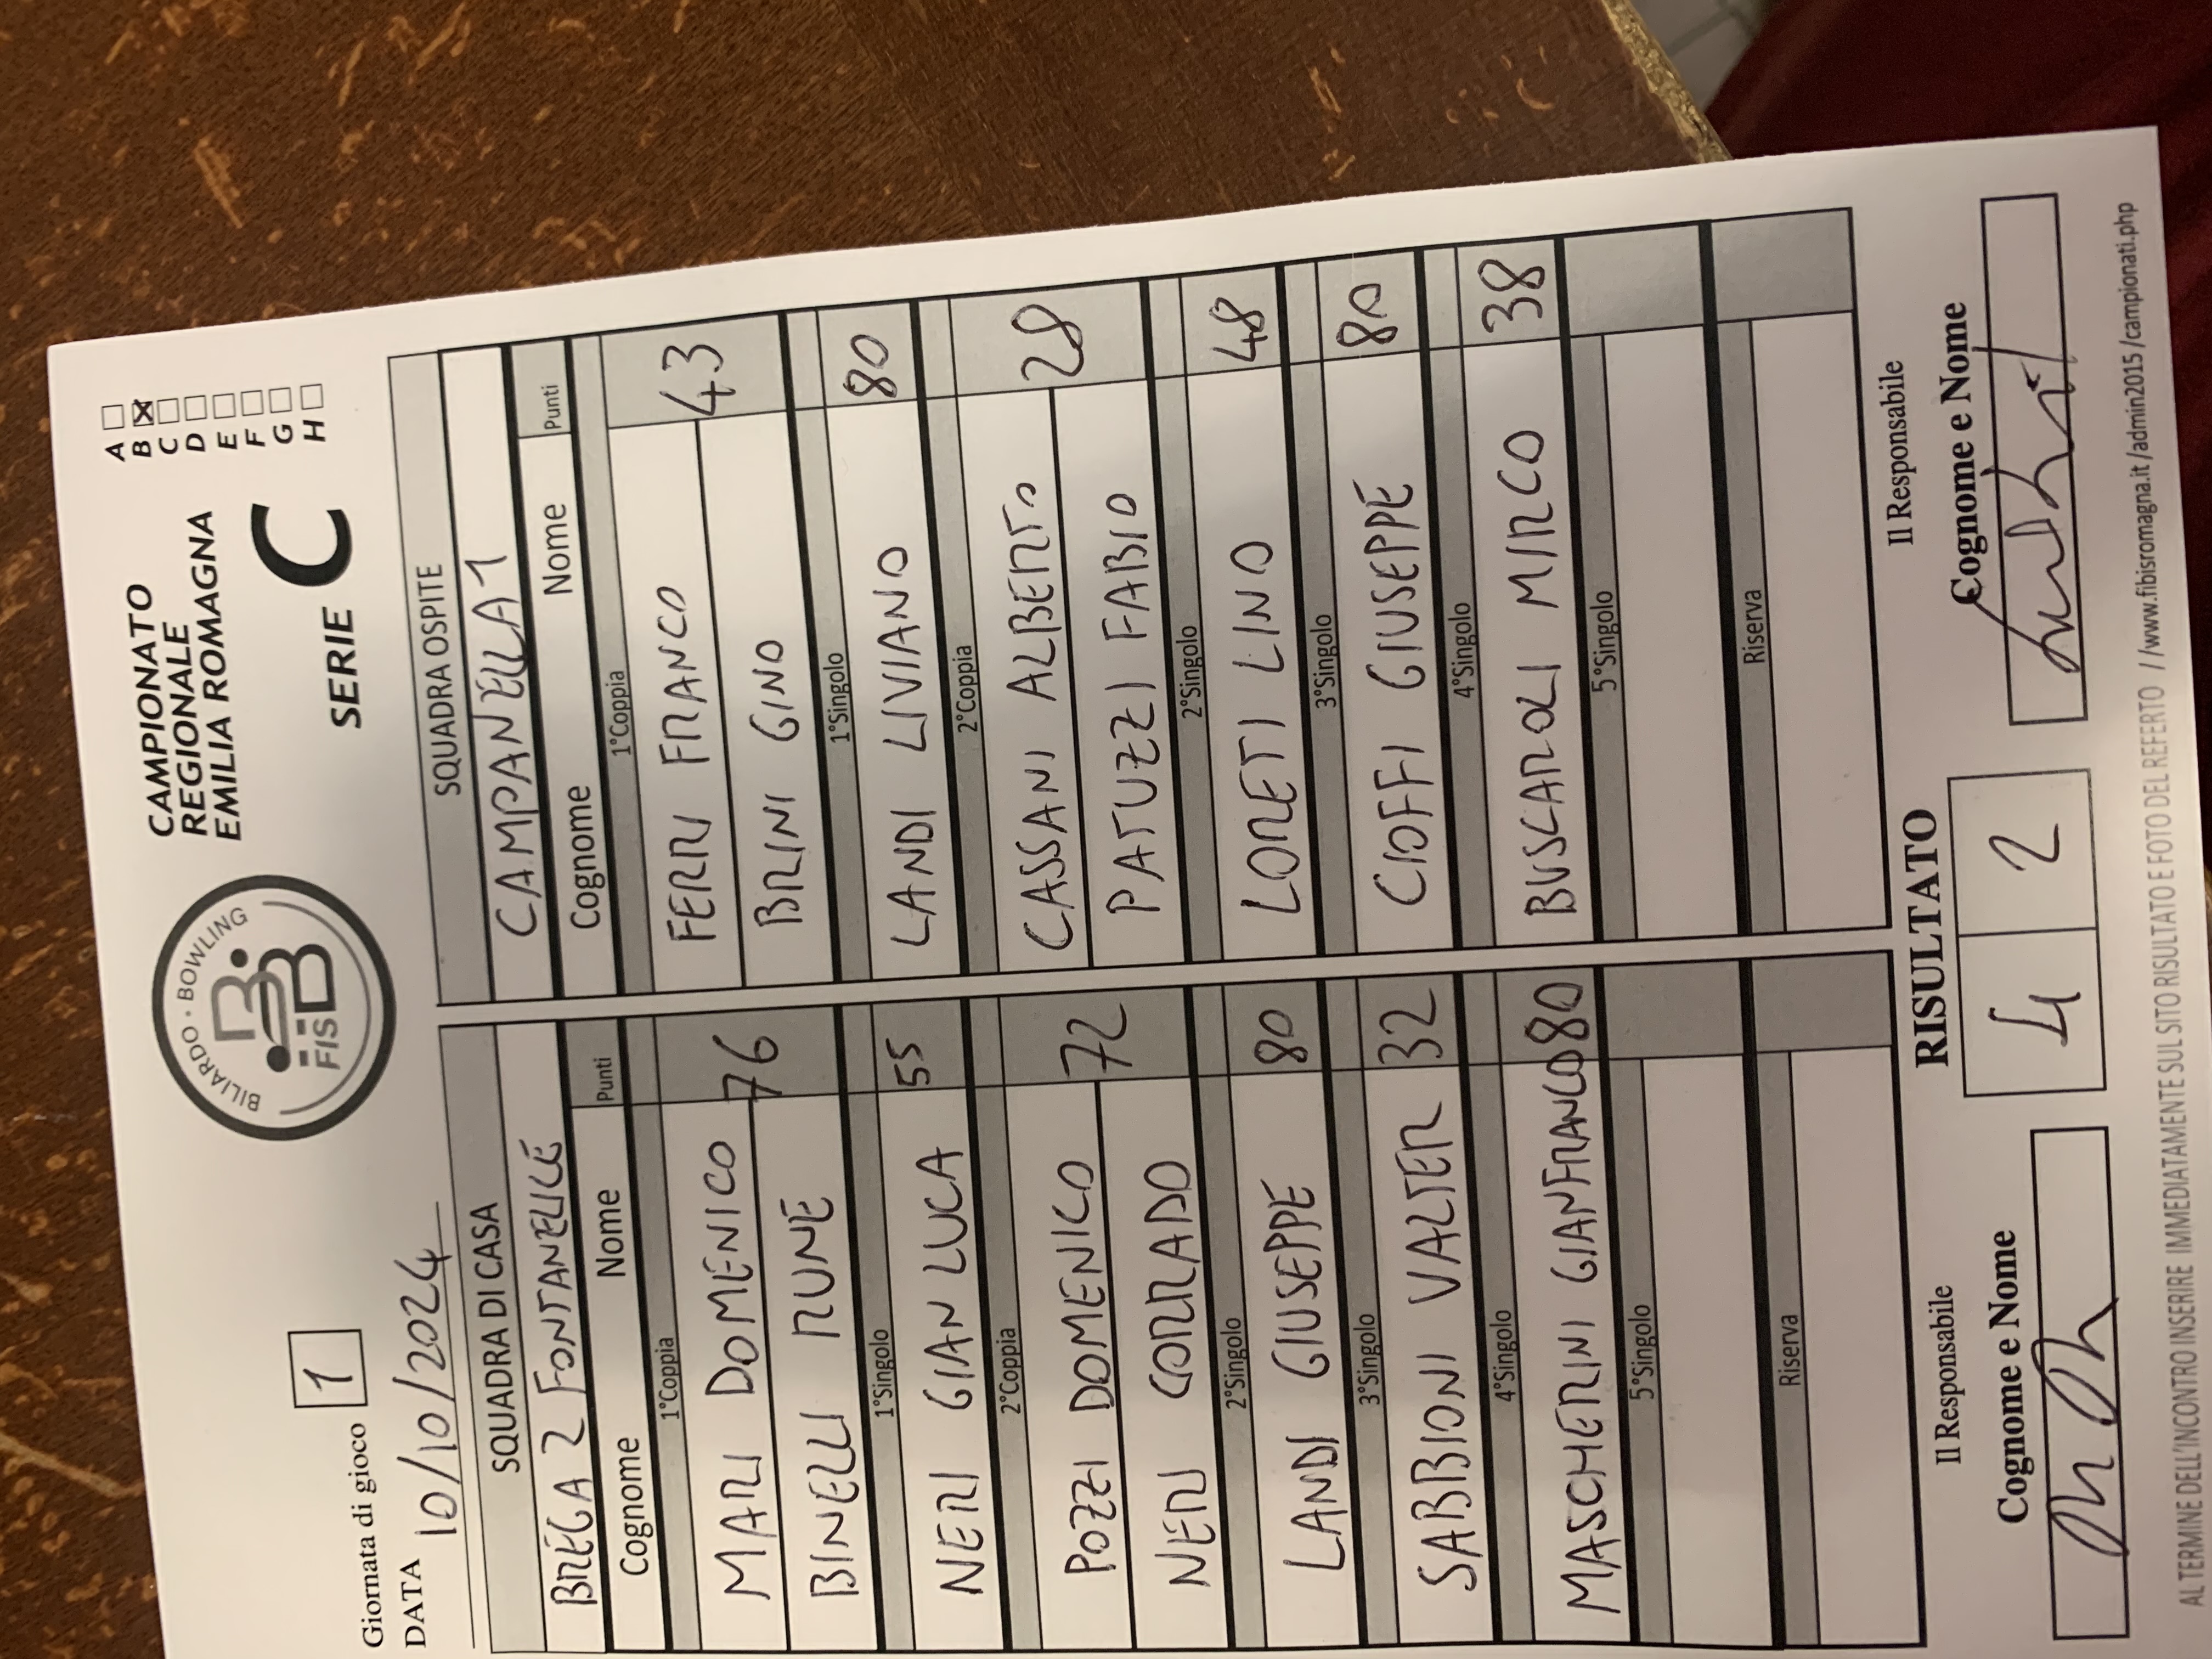 Giornata di gioco 1
DATA 10/10/2024
BILIARDO · BOWLING
FISBB
CAMPIONATO
REGIONALE
EMILIA ROMAGNA
SERIE C
A
B X
C
D
E
F
G
H
SQUADRA DI CASA
BREGA 2 FONTANELICE
Cognome Nome Punti
1°Coppia
MARI DOMENICO
BINELLI RUNE
76
1°Singolo
NERI GIAN LUCA 55
2°Coppia
POZZI DOMENICO
NERI CORRADO
72
2°Singolo
LANDI GIUSEPPE 80
3°Singolo
SABBIONI VALTER 32
4°Singolo
MASCHERINI GIANFRANCO 80
5°Singolo
Riserva
SQUADRA OSPITE
CAMPANELLA 1
Cognome Nome Punti
1°Coppia
FERRI FRANCO
BRINI GINO
43
1°Singolo
LANDI LIVIANO 80
2°Coppia
CASSANI ALBERTO
PATUZZI FABIO
28
2°Singolo
LORETI LINO 48
3°Singolo
CIOFFI GIUSEPPE 80
4°Singolo
BUSCAROLI MIRCO 38
5°Singolo
Riserva
Il Responsabile
Cognome e Nome
RISULTATO
4 2
Il Responsabile
Cognome e Nome
AL TERMINE DELL'INCONTRO INSERIRE IMMEDIATAMENTE SUL SITO RISULTATO E FOTO DEL REFERTO //www.fibisromagna.it/admin2015/campionati.php